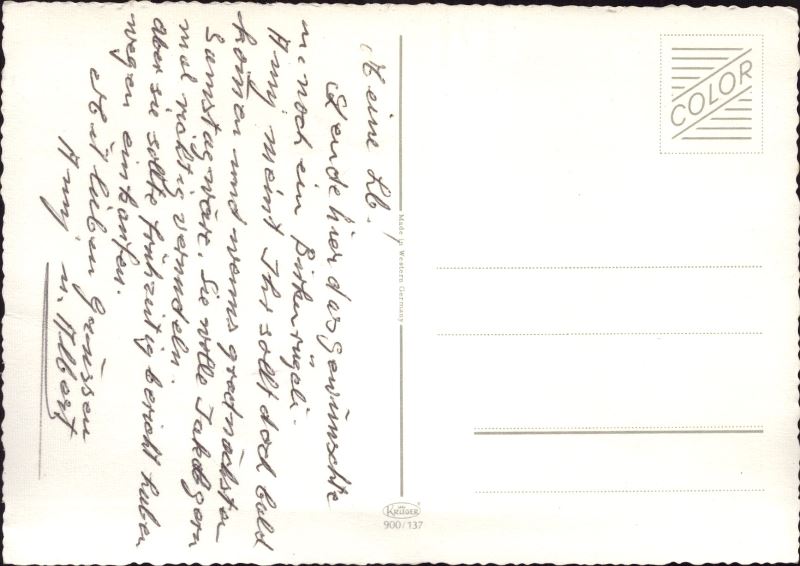 Meine Lb.!
Sende hier das Gewünschte
m. noch ein Birkenrugeli.
Anny meint Ihr sollt doch bald
kommen und wenns grad nächsten
Samstag wäre. Sie wolle Jakob gern
mal richtig vermöbeln.
aber sie sollte frühzeitig bericht haben
wegen einkaufen.
Mit lieben Grüssen
Anny u. Albert
COLOR
Made in Western Germany
KRÜGER
900/137